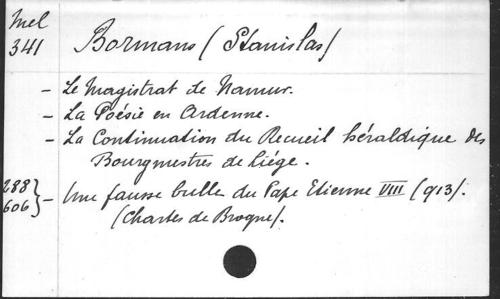 Mel
341
Bormans (Stanislas)
- Le Magistrat de Namur.
- La Poésie en Ardenne.
- La Continuation du Recueil héraldique des
Bourgmestres de Liége.
288
606 } - Une fausse bulle du Pape Etienne VIII (913).
(Chartes de Brogne).